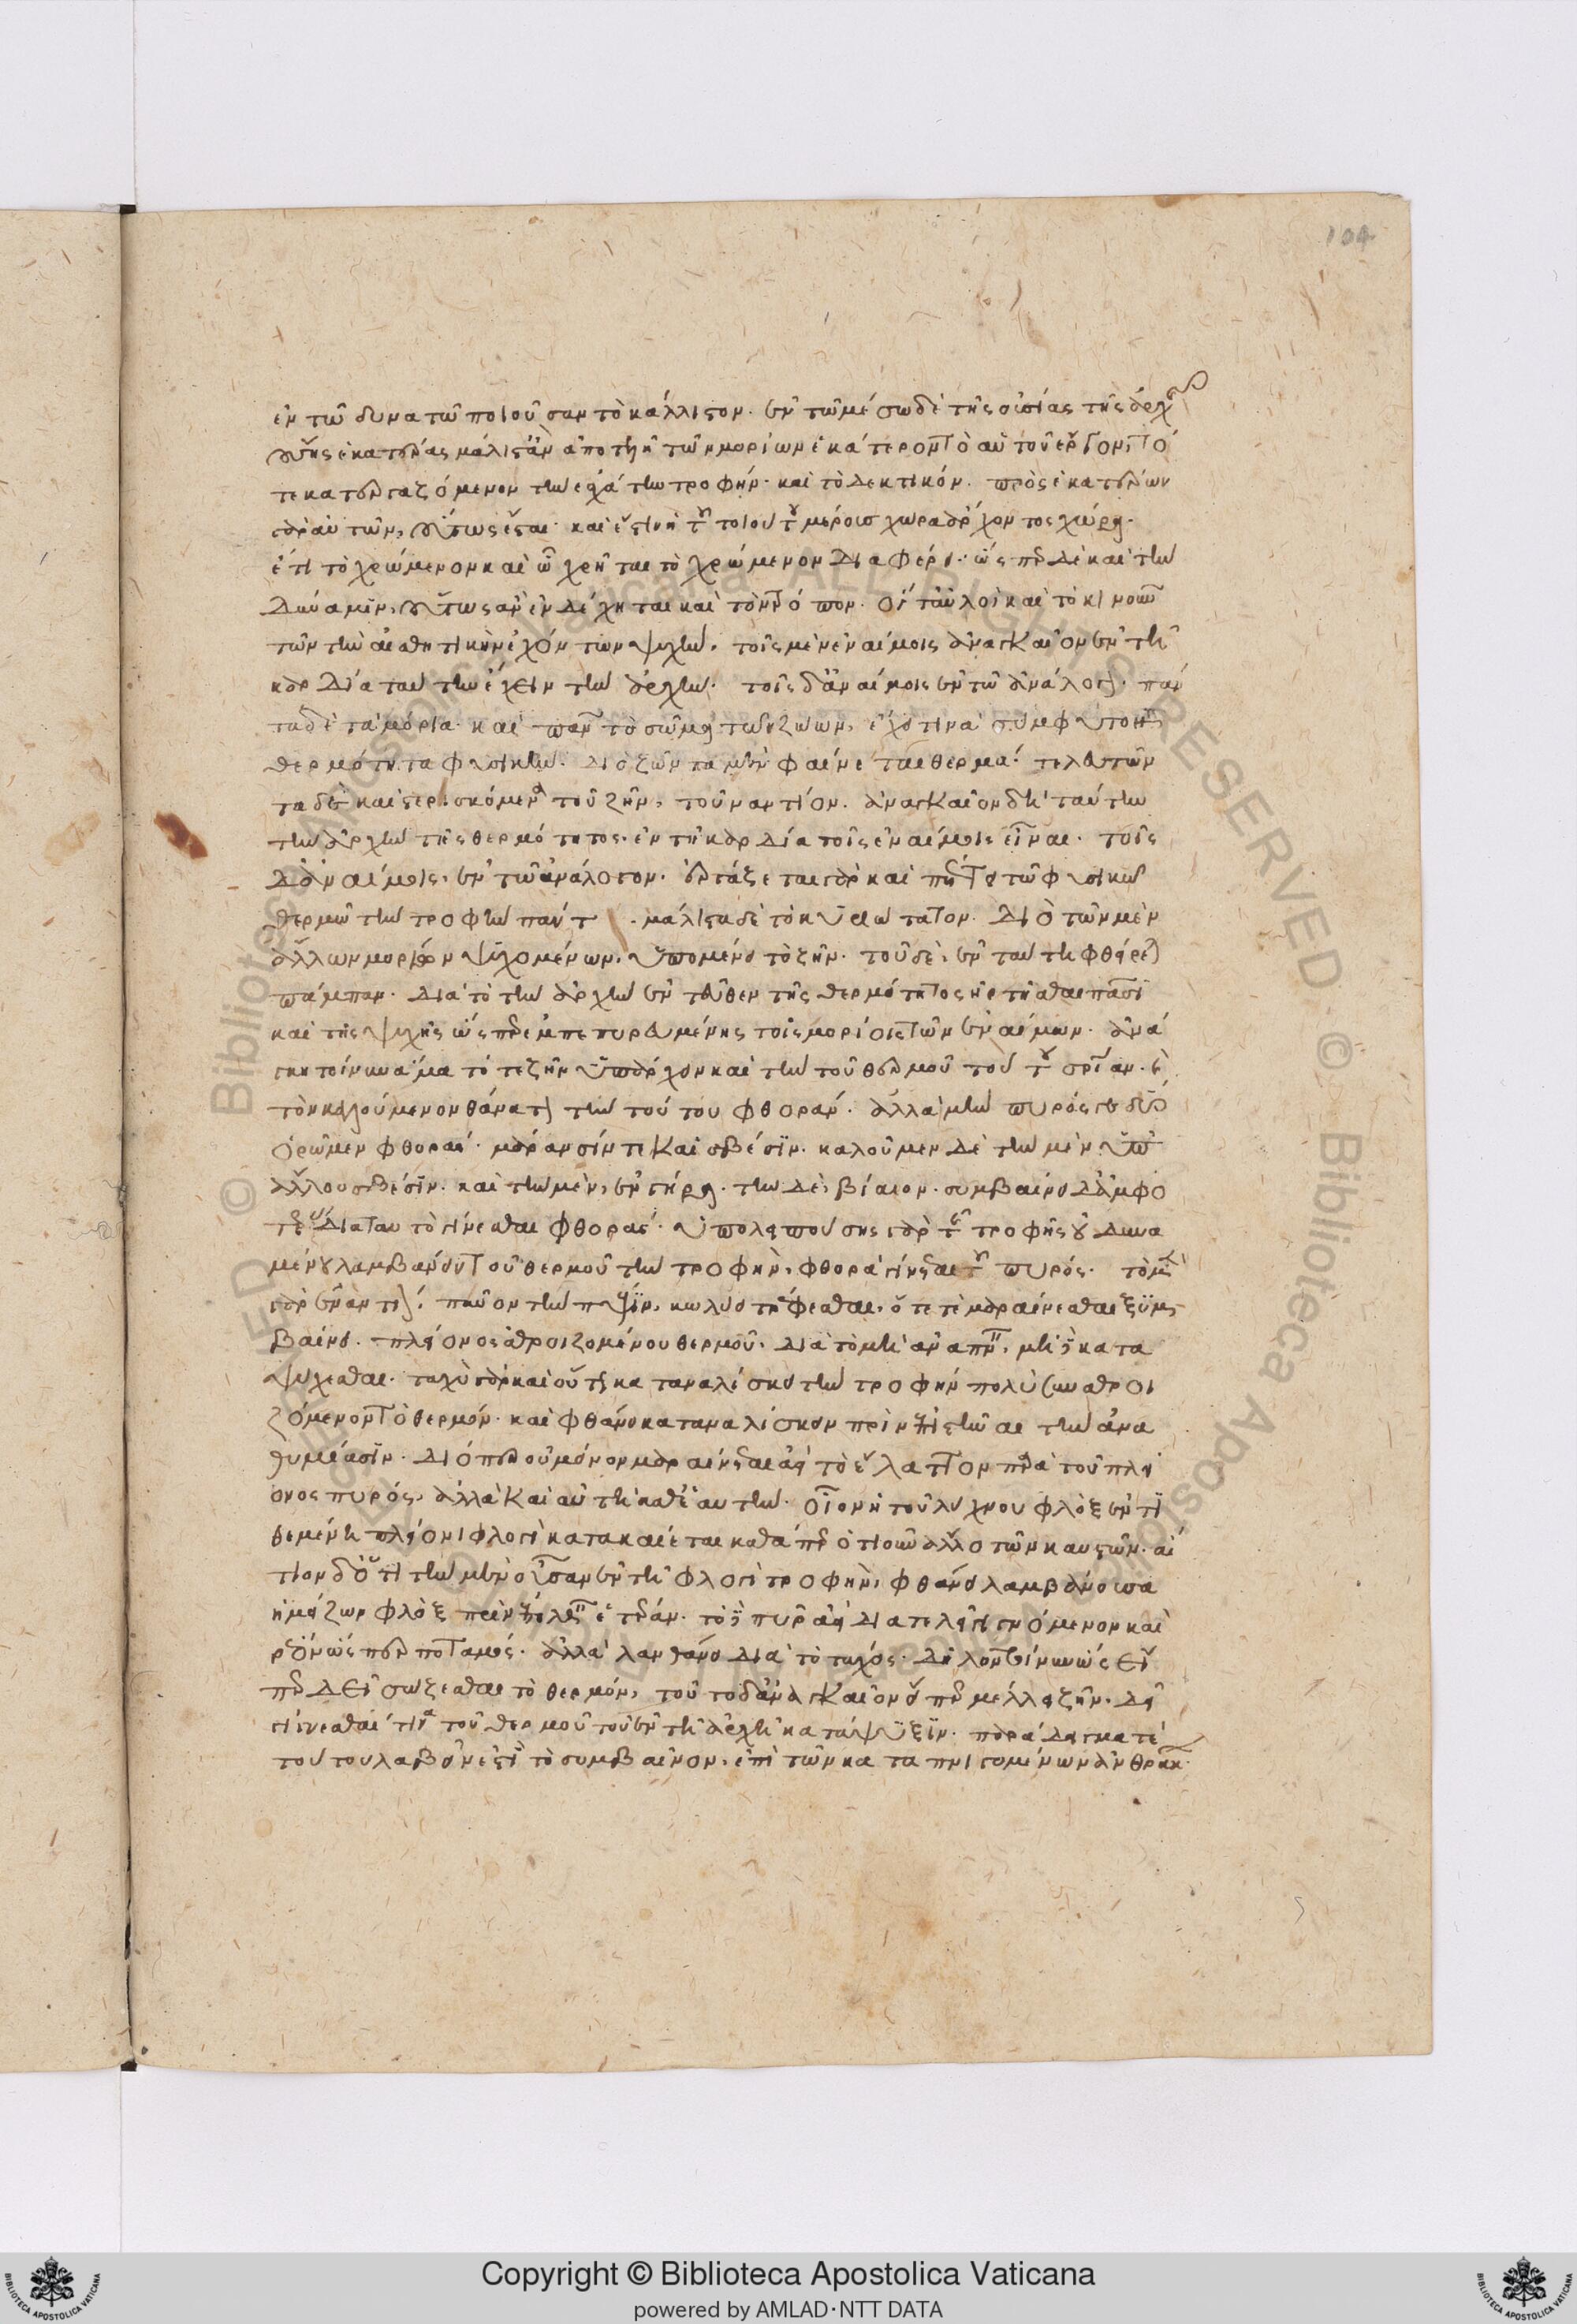 104
ἐν τῶ δυνατῶ ποιοῦσαν τὸ κάλλιστον. ἐν τῶ μέσω δὲ τῆς οὐσίας τῆς ἀρχῆς
οὔσης ἑκατέρας μάλιστ' ἂν ἀποτελῆ τῶν μορίων ἑκάτερον τὸ αὑτοῦ ἔργον, τό
τε κατεργαζόμενον τὴν ἐσχάτην τροφήν. καὶ τὸ δεκτικόν. πρὸς ἑκατέρω
γὰρ αὐτῶν, οὕτως ἔσται. καὶ ἔστιν ἡ τοῦ τοιούτου μέσου χώρα ἄρχοντος χώρα.
ἔτι τὸ χρώμενον καὶ ὧ χρῆται τὸ χρώμενον διαφέρει. ὥσπερ δὲ καὶ τὴν
δύναμιν, οὕτως ἂν ἐνδέχηται καὶ τὸν τόπον. οἵ τ' αὐλοὶ καὶ τὸ κινοῦν
τῶν τὴν αἰσθητικὴν ἐχόντων ψυχὴν. τοῖς μὲν ἐναίμοις ἀναγκαῖον ἐν τῆ
καρδία ταύτην ἔχειν τὴν ἀρχὴν. τοῖς δ' ἀναίμοις ἐν τῶ ἀνάλογον. πάν
τα δὲ τὰ μόρια καὶ πᾶν τὸ σῶμα τῶν ζώων, ἔχει τινὰ σύμφυτον
θερμότητα φυσικὴν. διὸ ζῶντα μὲν φαίνεται θερμά. τελευτῶν
τα δὲ καὶ στερισκόμενα τοῦ ζῆν, τοὐναντίον. ἀναγκαῖον δὴ ταύτην
τὴν ἀρχὴν τῆς θερμότητος. ἐν τῆ καρδία τοῖς ἐναίμοις εἶναι. τοῖς
δ' ἀναίμοις, ἐν τῶ ἀνάλογον. ἐργάζεται γὰρ καὶ πέττει τῶ φυσικῶ
θερμῶ τὴν τροφὴν πάντα. μάλιστα δὲ τὸ κυριώτατον. διὸ τῶν μὲν
ἄλλων μορίων ψυχομένων, ὑπομένει τὸ ζῆν. τοῦ δὲ, ἐν ταύτη φθείρεται
πάμπαν. διὰ τὸ τὴν ἀρχὴν ἐντεῦθεν τῆς θερμότητος ἠρτῆσθαι πᾶσι
καὶ τῆς ψυχῆς ὥσπερ ἐμπεπυρευμένης τοῖς μορίοις τῶν ἐναίμων. ἀνά
γκη τοίνυν ἅμα τό τε ζῆν ὑπάρχειν καὶ τὴν τοῦ θερμοῦ τούτου σωτηρίαν. καὶ
τὸν καλούμενον θάνατον τὴν τούτου φθοράν. ἀλλὰ μὴν πυρός γε δύο
ὁρῶμεν φθοράς. μάρανσίν τε καὶ σβέσιν. καλοῦμεν δὲ τὴν μὲν ὑπ'
ἄλλου σβέσιν. καὶ τὴν μὲν, ἐν γήρα. τὴν δὲ, βίαιον. συμβαίνει δ' ἀμφο
τέρας διὰ ταυτὸ γίνεσθαι φθοράς. ὑπολειπούσης γὰρ τῆς τροφῆς οὐ δυνα
μένου λαμβάνειν τοῦ θερμοῦ τὴν τροφὴν, φθορὰ γίνεται τοῦ πυρός. τὸ μὲν
γὰρ ἐναντίον παῦον τὴν πέψιν, κωλύει τρέφεσθαι. ὁτὲ δὲ μαραίνεσθαι ξυμ
βαίνει. πλείονος ἀθροιζομένου θερμοῦ. διὰ τὸ μὴ ἀναπνεῖν, μὴ δὲ κατα
ψύχεσθαι. ταχὺ γὰρ καὶ οὕτω καταναλίσκει τὴν τροφὴν πολὺ συναθροι
ζόμενον τὸ θερμόν. καὶ φθάνει καταναλίσκον πρὶν ἐπιστῆναι τὴν ἀνα
θυμίασιν. διόπερ οὐ μόνον μαραίνεται ἀεὶ τὸ ἔλαττον παρὰ τοῦ πλεί
ονος πυρός. ἀλλὰ καὶ αὐτὴ καθ' ἑαυτὴν. οἷον ἡ τοῦ λύχνου φλὸξ ἐντι
θεμένη πλείονι φλογὶ κατακαίεται καθάπερ ὁτιοῦν ἄλλο τῶν καυστῶν. αἴ
τιον δ' ὅτι τὴν μὲν οὖσαν ἐν τῆ φλογὶ τροφὴν, φθάνει λαμβάνουσα
ἡ μείζων φλὸξ πρὶν ἐπελθεῖν ἑτέραν. τὸ δὲ πῦρ ἀεὶ διατελεῖ γινόμενον καὶ
ῥέον ὥσπερ ποταμός. ἀλλὰ λανθάνει διὰ τὸ τάχος. δῆλον τοίνυν ὡς εἴ
περ δεῖ σώζεσθαι τὸ θερμόν, τοῦτο δ' ἀναγκαῖον εἴπερ μέλλει ζῆν. δεῖ
γίνεσθαί τινα τοῦ θερμοῦ τοῦ ἐν τῆ ἀρχῆ κατάψυξιν. παράδειγμα δὲ
τούτου λαβεῖν ἐστὶ τὸ συμβαῖνον. ἐπὶ τῶν καταπνιγομένων ἀνθράκων.
Copyright © Biblioteca Apostolica Vaticana
powered by AMLAD·NTT DATA